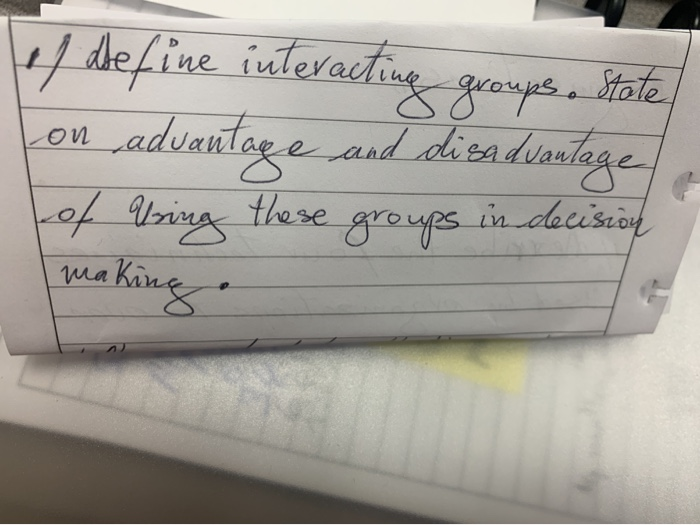 1) define interacting groups. State
on advantage and disadvantage
of Using these groups in decision
making.